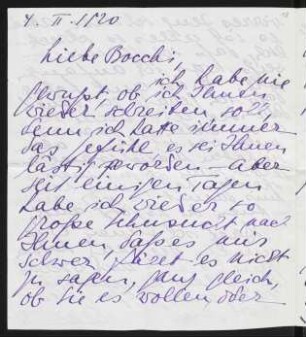 4. II. 1920
Liebe Bocchi,
ich habe nie
gewußt, ob ich Ihnen
wieder schreiben soll,
denn ich hatte immer
das Gefühl es sei Ihnen
lästig geworden – aber
seit einigen Tagen
habe ich wieder so
große Sehnsucht nach
Ihnen, daß es mir
schwer fället es nicht
zu sagen, ganz gleich,
ob Sie es wollen oder